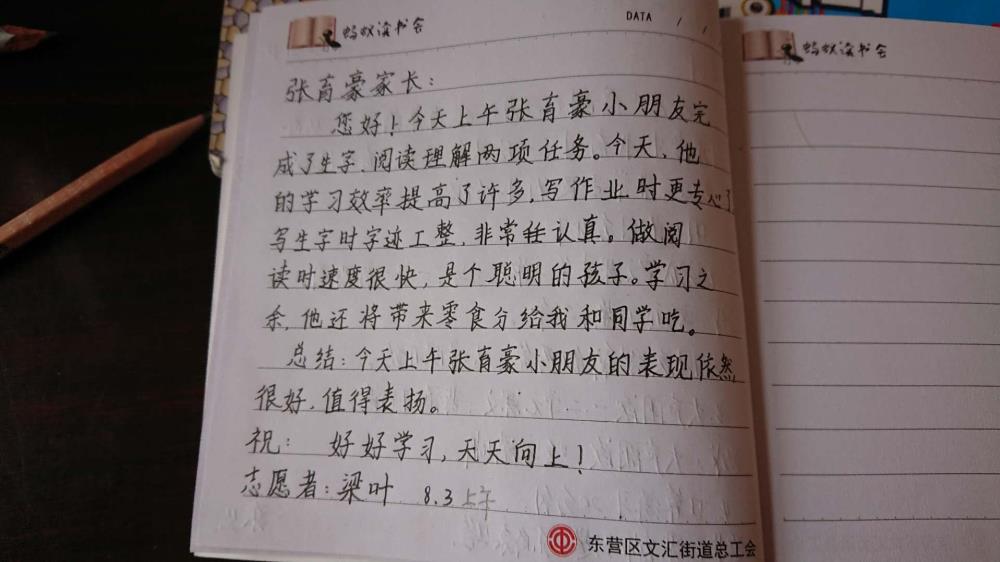 蚂蚁读书会
DATA / /
张育豪家长：
您好！今天上午张育豪小朋友完
成了生字、阅读理解两项任务。今天，他
的学习效率提高了许多，写作业时更专心了
写生字时字迹工整，非常认真。做阅
读时速度很快，是个聪明的孩子。学习之
余，他还将带来零食分给我和同学吃。
总结：今天上午张育豪小朋友的表现依然
很好，值得表扬。
祝： 好好学习，天天向上！
志愿者：梁叶 8.3上午
东营区文汇街道总工会
蚂蚁读书会